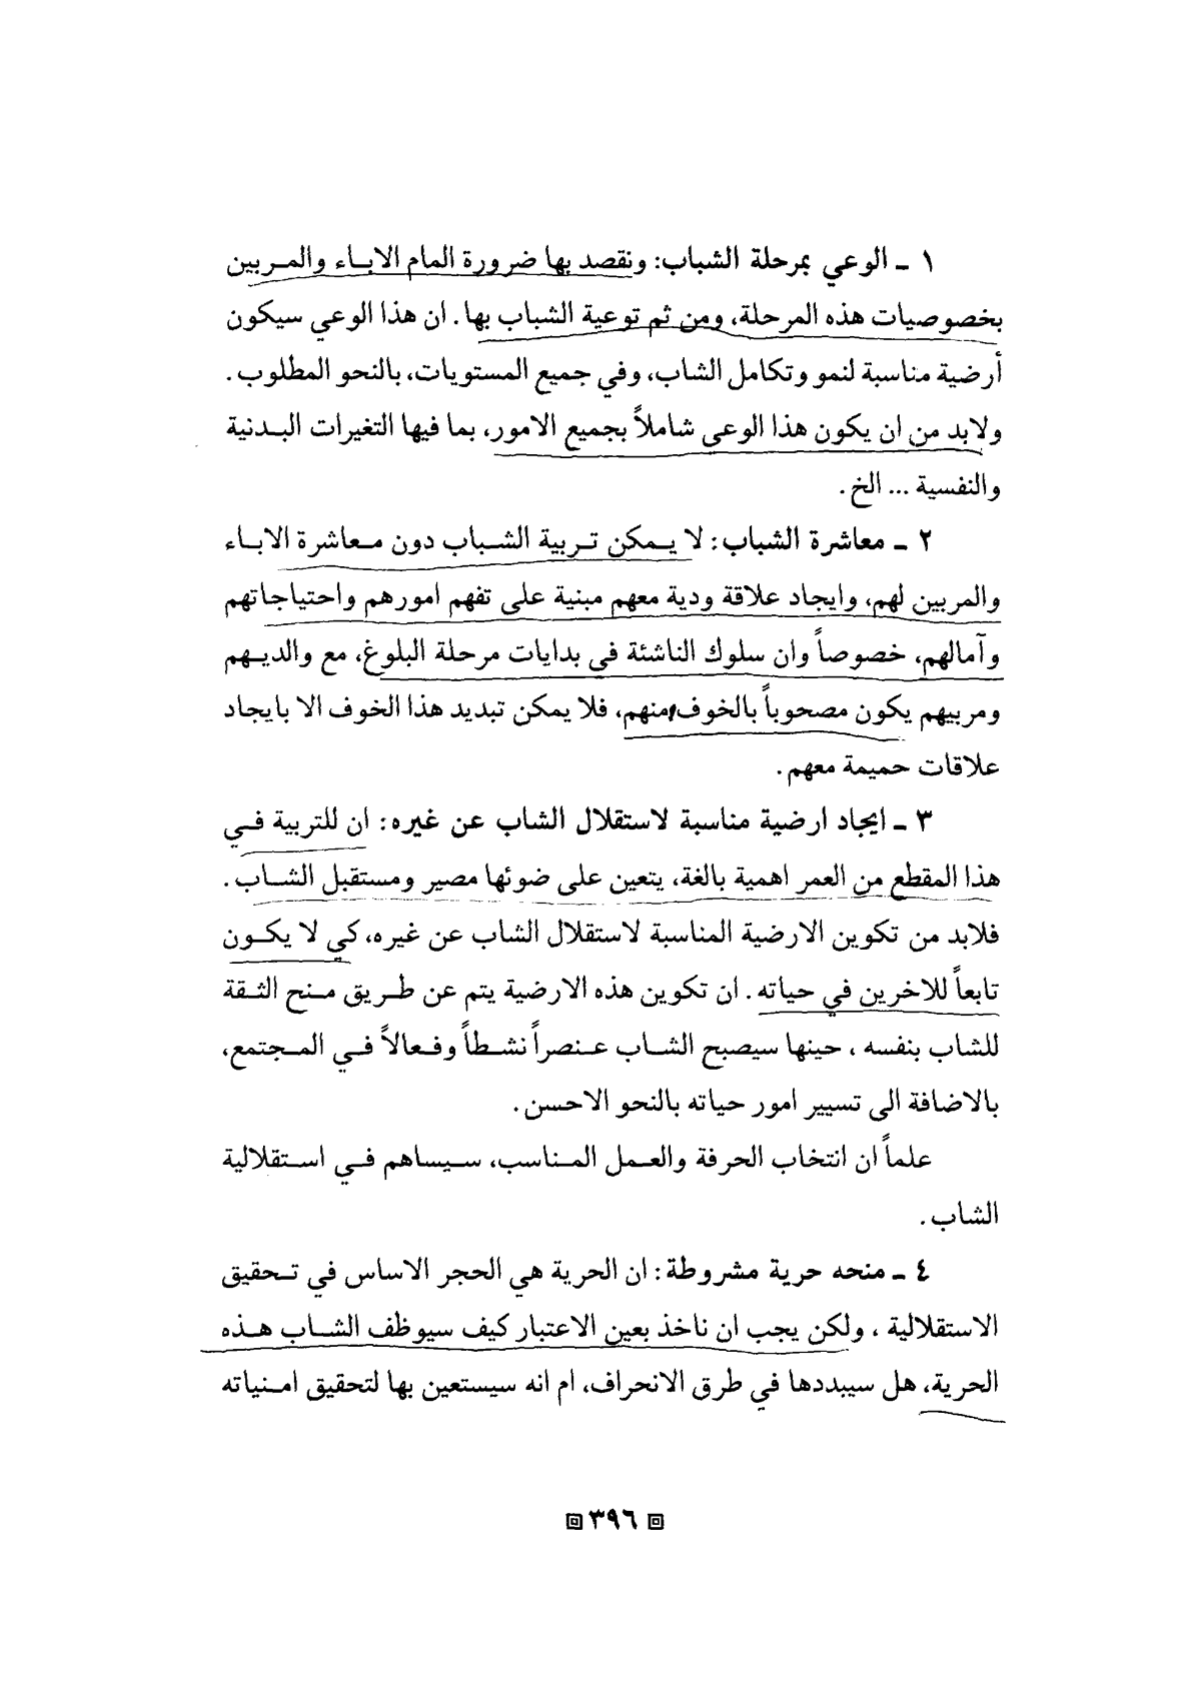 ١ ـ الوعي بمرحلة الشباب: ونقصد بها ضرورة المام الاباء والمربين
بخصوصيات هذه المرحلة، ومن ثم توعية الشباب بها. ان هذا الوعي سيكون
أرضية مناسبة لنمو وتكامل الشاب، وفي جميع المستويات، بالنحو المطلوب.
ولابد من ان يكون هذا الوعي شاملاً بجميع الامور، بما فيها التغيرات البدنية
والنفسية ... الخ.
٢ ـ معاشرة الشباب: لا يمكن تربية الشباب دون معاشرة الاباء
والمربين لهم، وايجاد علاقة ودية معهم مبنية على تفهم امورهم واحتياجاتهم
وآمالهم، خصوصاً وان سلوك الناشئة في بدايات مرحلة البلوغ، مع والديهم
ومربيهم يكون مصحوباً بالخوف منهم، فلا يمكن تبديد هذا الخوف الا بايجاد
علاقات حميمة معهم.
٣ ـ ايجاد ارضية مناسبة لاستقلال الشاب عن غيره: ان للتربية في
هذا المقطع من العمر اهمية بالغة، يتعين على ضوئها مصير ومستقبل الشاب.
فلابد من تكوين الارضية المناسبة لاستقلال الشاب عن غيره، كي لا يكون
تابعاً للاخرين في حياته. ان تكوين هذه الارضية يتم عن طريق منح الثقة
للشاب بنفسه ، حينها سيصبح الشاب عنصراً نشطاً وفعالاً في المجتمع،
بالاضافة الى تسيير امور حياته بالنحو الاحسن.
علماً ان انتخاب الحرفة والعمل المناسب، سيساهم في استقلالية
الشاب.
٤ ـ منحه حرية مشروطة: ان الحرية هي الحجر الاساس في تحقيق
الاستقلالية ، ولكن يجب ان ناخذ بعين الاعتبار كيف سيوظف الشاب هذه
الحرية، هل سيبددها في طرق الانحراف، ام انه سيستعين بها لتحقيق امنياته
٣٩٦